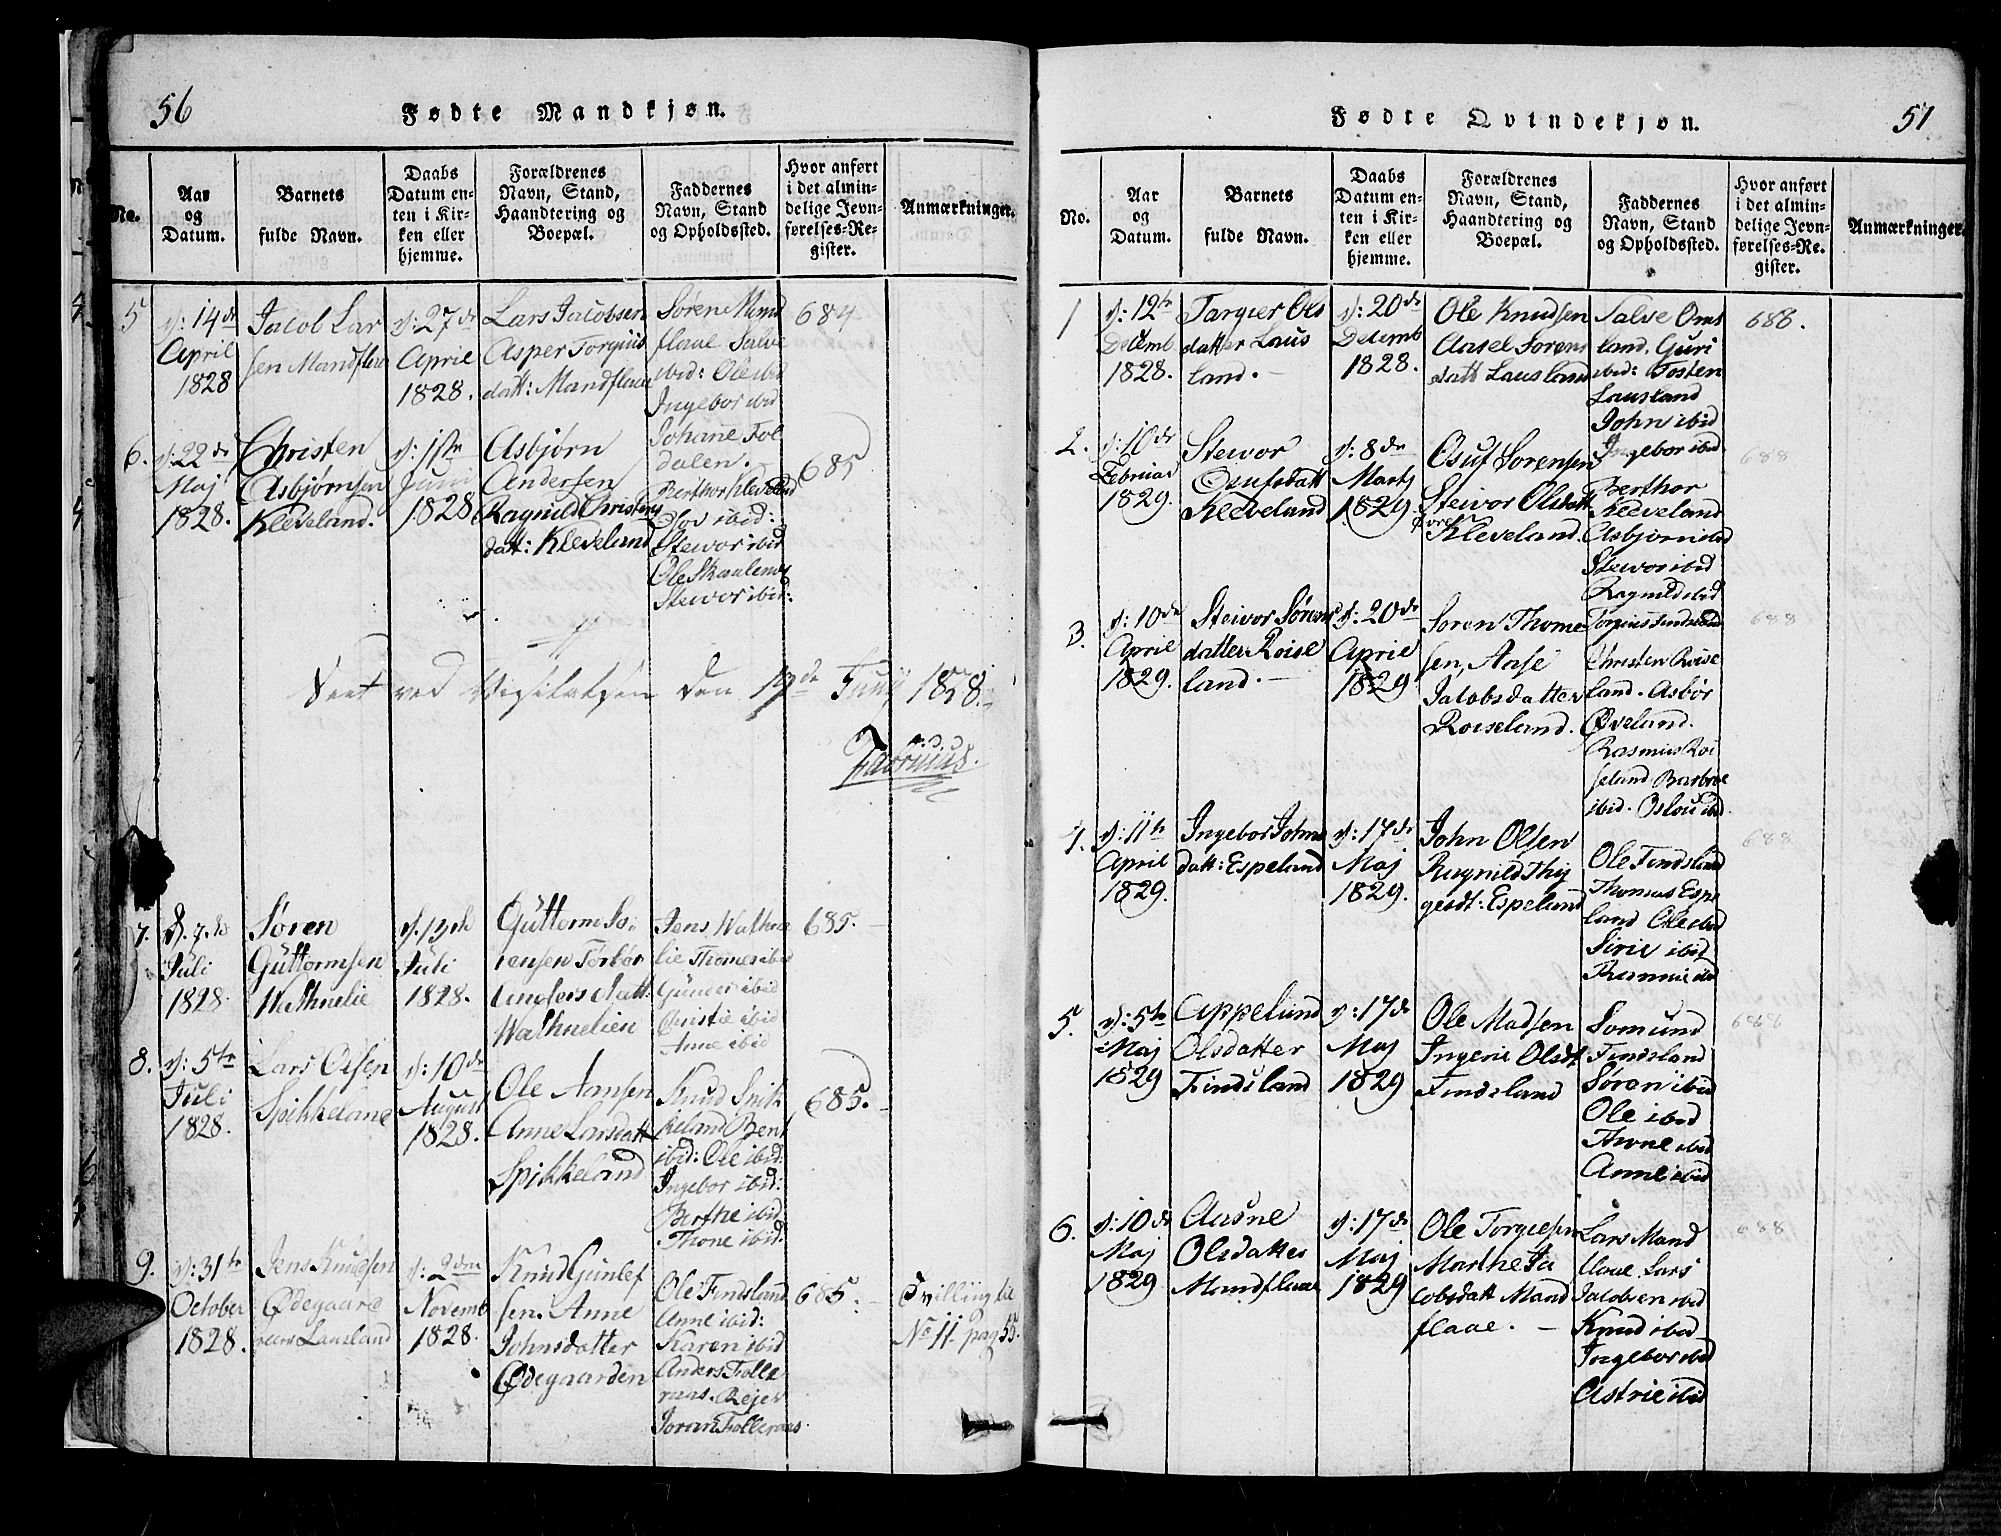 56
Fødte Mandkjøn.
No.
Aar
og
Datum.
Barnets
fulde Navn.
Daabs
Datum en-
ten i Kir-
ken eller
hjemme.
Forældrenes
Navn, Stand,
Haandtering og
Boepæl.
Faddernes
Navn, Stand
og Opholdssted.
Hvor anført
i det almin-
delige Jevn-
førelses-Re-
gister.
Anmærkninger.
5
d: 14de
April
1828
Jacob Lar
sen Mandflaae
d: 27de
April
1828.
Lars Jacobsen
Asper Torgiis
datt: Mandflaae
Sørene Mand
flaae Salve
ibid: Ole ibid
Ingebor ibid
Johane Fol
dalen.
684
6.
d: 22de
Maj
1828.
Christen
Asbjørnsen
Kleveland.
d: 1ste
Juni
1828
Asbjørn
Andersen
Ragnild Christens
datt: Kleveland
Berthor Kleveland
ibid:
Steivor ibid
Ole
Steivor ibid:
685
Seet ved Visitatsen den 19de Junij 1828.
7.
d. 7de
Juli
1828.
Søren
Guttormsen
Wathnelie
d. 13de
Juli
1828.
Guttorm Sø-
rensen Torbor
Anders datt:
Wathnelien
Jens Wathne
lie Thomes ibid
Gunder ibid
Christie ibid
Anne ibid
685.
8.
d: 5te
Juli
1828.
Lars Olsen
Spikkeland
d: 10de
August
1828.
Ole Aansen
Anne Larsdatt
Spikkeland
Knud Spik
keland Bent
ibid: Ole ibid:
Ingebor ibid:
Berthe ibid
Thone ibid:
685.
9.
d: 31te
October
1828.
Jens Knudsen
Ødegaard
Lausland
d: 2den
Novemb
1828.
Knud Gunlef
sen. Anne
Johnsdatter
Ødegaarden
Ole Findsland
Anne ibid:
Karen ibid
Anders Folle
raas. Rejer
Joran Folleraas.
685.
Tvilling til
No 11. pag 55.
57
Fødte Qvindekjøn.
No.
Aar
og
Datum.
Barnets
fulde Navn.
Daabs
Datum en-
ten i Kir-
ken eller
hjemme.
Forældrenes
Navn, Stand,
Haandtering og
Boepæl.
Faddernes
Navn, Stand
og Opholdssted.
Hvor anført
i det almin-
delige Jevn-
førelses-Re-
gister.
Anmærkninger.
1
d: 12te
Decemb
1828.
Targier Ols
datter Laus
land.
d: 20de
Decemb
1828.
Ole Knudsen
Aasel Sørens
datt Lausland
Salve Oms
land. Guri
ibid: Tosten
Lausland
John ibid
Ingebor ibid
688.
2.
d: 10de
Februar
1829.
Steivor
Osufsdatt
Kleveland
d: 8de
Marts
1829
Osuf Sorensen
Steivor Olsdatt
Øvre
Kleveland.
Berthor
Kleveland
Asbjørn ibid
Steivor ibid
Ragnild ibid
688
3.
d: 10de
April
1829.
Steivor Sørens
datter Roise
land.
d: 20de
April
1829
Soren Thome
sen, Aase
Jacobsdatter
Roiseland.
Torgius Findsland
Christen Roise
land. Asbør
Øveland.
Rasmus Roi
seland Barbroe
ibid. Oslou ibid.
688
4.
d: 11te
April
1829.
Ingebor Johns
datt: Espeland
d: 17de
Maj
1829.
John Olsen
Ragnild Thij
gesdt: Espeland
Ole Findsland
Thomas Espe
land Ole ibid
Sirie ibid
688
5.
d: 5te
Maj
1829
Appelund
Olsdatter
Findsland
d: 17de
Maj
1829
Ole Madsen
Ingerie Olsdt
Findsland
Somund
Findsland
Søren ibid
Ole ibid
Thone ibid
Anne ibid
688
6.
d: 10de
Maj
1829
Aasne
Olsdatter
Mandflaae
d: 17de
Maj
1829
Ole Torgiesen
Marthe Ja
cobsdatt Mand
flaae.
Lars Mand
flaae. Lars
Jacobsen ibid
Knud ibid
Ingebor ibid
Astrie ibid
688